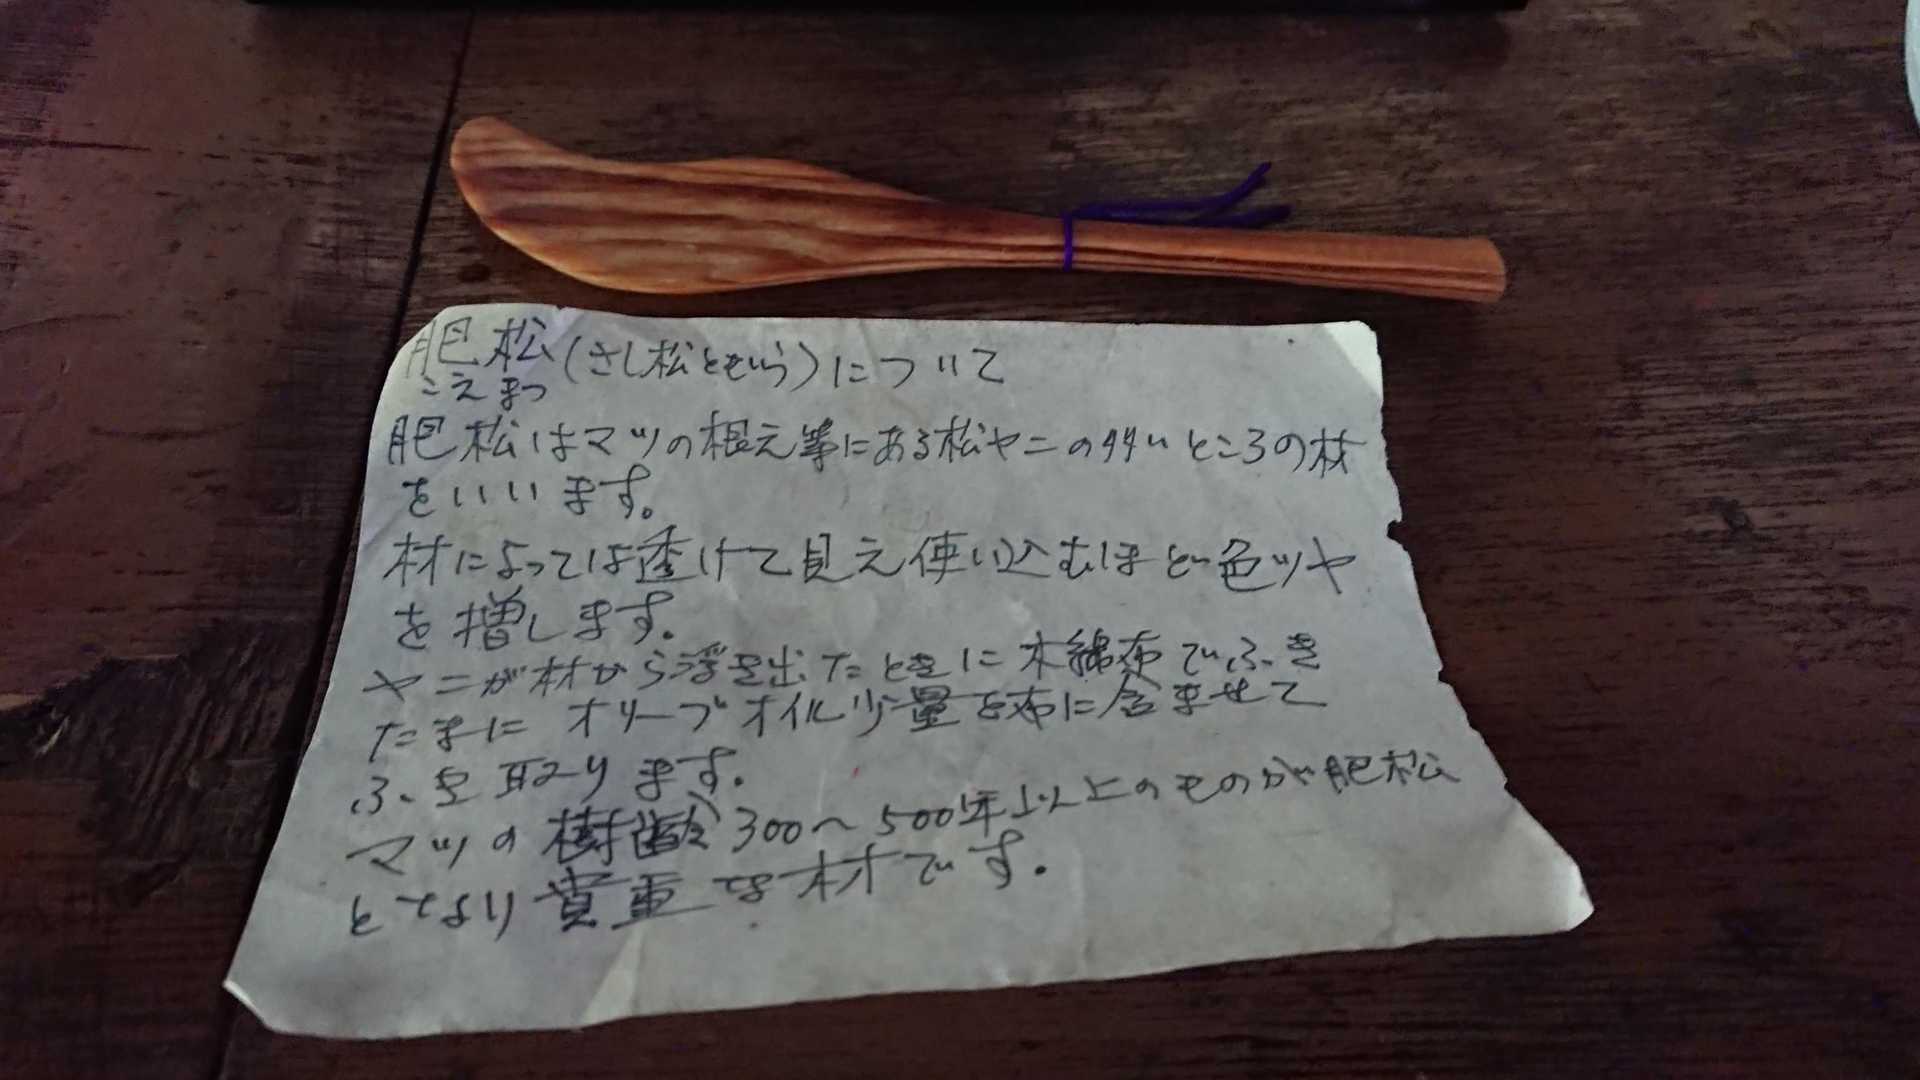 肥松(さし松ともいう)について
こえまつ
肥松はマツの根元等にある松ヤニの多いところの材
をいいます。
材によっては透けて見え使い込むほど色ツヤ
を増します。
ヤニが材から浮き出たときに木綿布でふき
たまにオリーブオイル少量を布に含ませて
ふき取ります。
マツの樹齢300〜500年以上のものが肥松
となり貴重な材です。